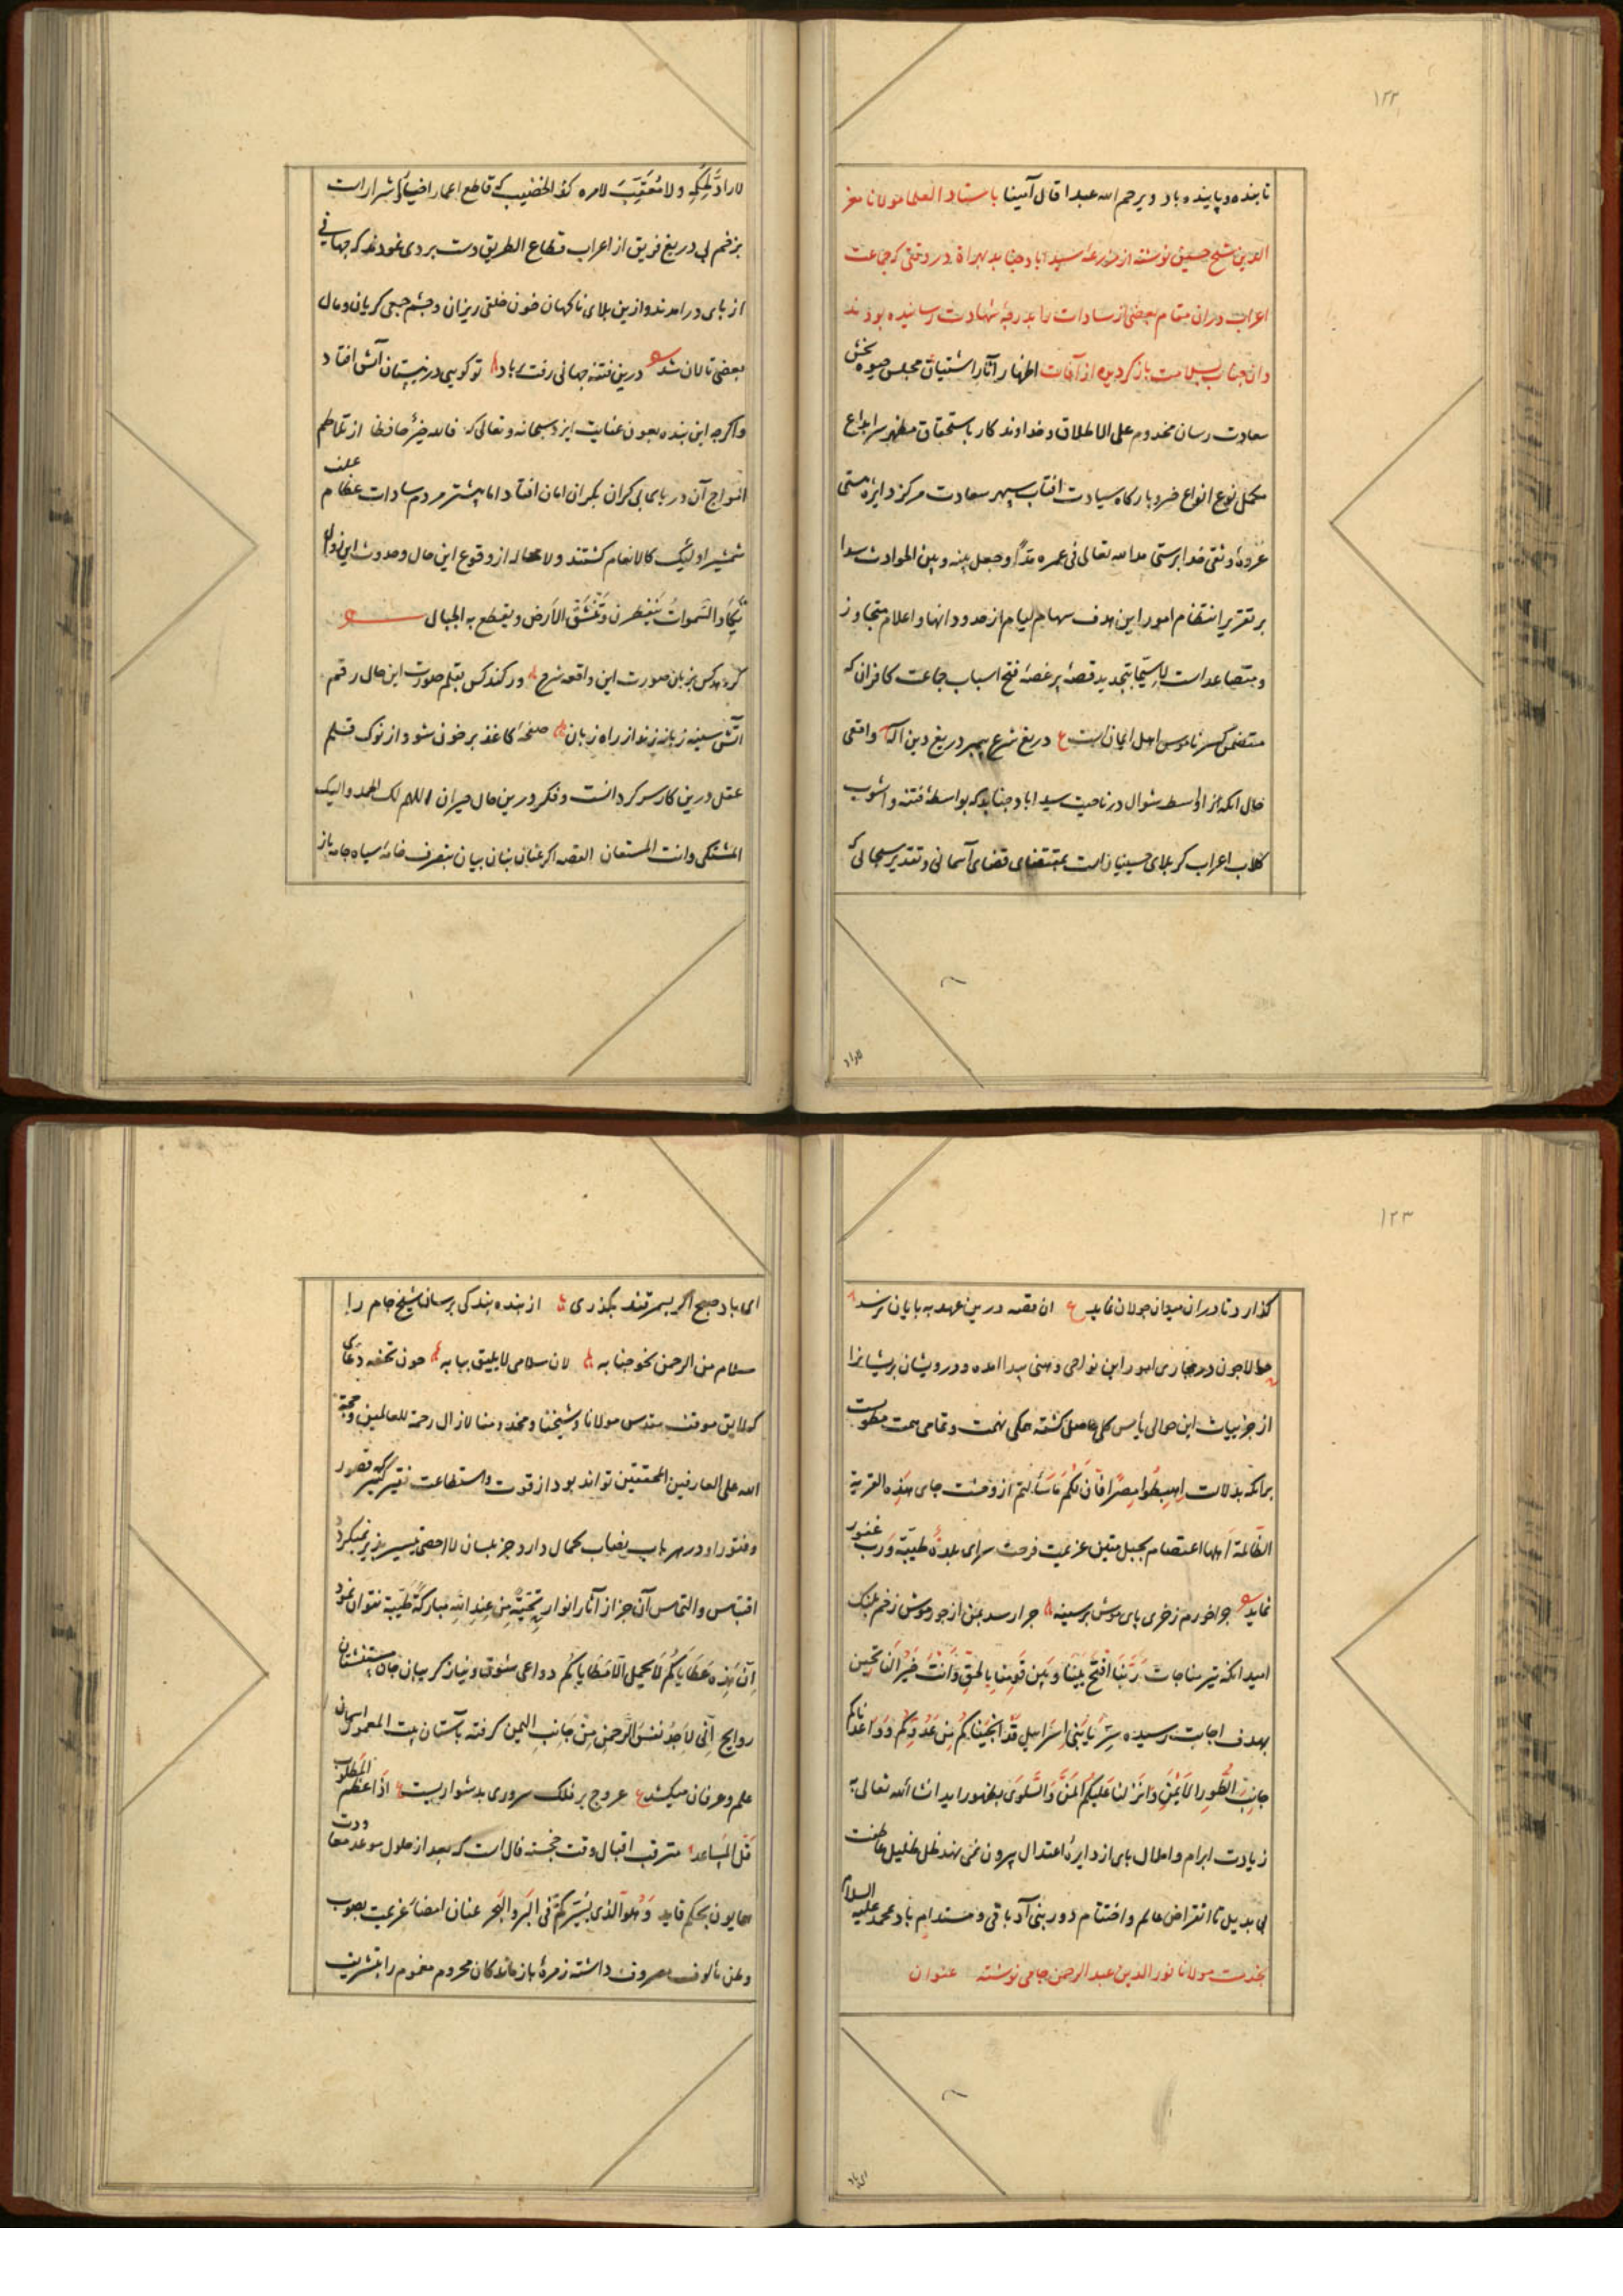 ۱۲۲
تابنده و پاینده باد و یرحم الله عبدا قال آمینا باستاد العلما مولانا معز
الدین شیخ حسین نوشته از مزرعه سیداباد جنابد بهراة در وقتی که جماعت
اعراب دران مقام بعضی از سادات را بدرجه شهادت رسانیده بودند
وان جناب بسلامت باز کردیده از آفات اظهار آثار اشتیاق مجلس حیوه بخش
سعادت رسان مخدوم علی الاطلاق و خداوندکار باستحقاق مظهر سر ابداع
مکمل نوع انواع خسرو بارکاه سیادت افتاب سپهر سعادت مرکز دایره هستی
عروه وثقی خدا پرستی مد الله تعالی فی عمره مدّا و جعل بینه و بین الحوادث سدا
بر تقریر انتظام امور این هدف سهام لیام از حدود انها و اعلام متجاوز
و متصاعد است لاسیّما بتجدید قصه پر غصه فتح اسباب جماعت کافران که
متضمن کسر ناموس اهل ایمان است ع دریغ شرع پیمبر دریغ دین اله واقعی
حال انکه از اواسط شوال در ناحیت سیداباد جنابد که بواسطه فتنه و اشوب
کلاب اعراب کربلای حسینیان است بمقتضای قضای آسمانی و تقدیر سبحانی که
لاراد
لا رادّ لحکمه ولا معقّب لامره کف الخضیب که قاطع اعمار اخیار و اشرار است
بزخم بی دریغ فریق از اعراب قطاع الطریق دست بردی نمودند که جهانی
از پای درامدند و ازین بلای ناکهان خون خلقی ریزان و چشم جمعی کریان و مال
بعضی تالان شد درین فتنه جهانی رفت بر باد تو کویی در نیستان آتش افتاد
واکرچه این بنده بعون عنایت ایزد سبحانه و تعالی که فالله خیر حافظا از تلاطم
امواج آن دریای بی کران بکران امان افتاد اما بیشتر مردم سادات عظام علف
شمشیر اولئک کالانعام کشتند ولا محاله از وقوع این حال و حدوث این زوال
تکاد السموات یتفطرن و تنشقّ الارض و یقطع به الجبال
کر دهد کس بزبان صورت این واقعه شرح ور کند کس بقلم صورت این حال رقم
آتش سینه زبانه زند از راه زبان صفحه کاغذ پر خون شود از نوک قلم
عقل درین کار سرکردانست و فکر درین حال حیران اللهم لک الحمد و الیک
المشتکی و انت المستعان القصه اکر عنان بنان بیان بتصرف خامه سیاه جامه باز
۱۲۳
کذارد تا دران میدان جولان نماید ع ان قصه درین عهد به پایان نرسد
حالا چون در مجاری امور این نواحی وهنی پیدا امده و درویشان پریشانرا
از جزییات این حوالی یأس کلی حاصل کشته همکی نهمت و تمامی همت مطویست
برانکه بدلالت اهبطوا مصرًا فان لکم ما سألتم از وحشت جای هذه القریة
الظالمة اهلها اعتصام بحبل متین عزیمت فرحت سرای بلدة طیبة و رب غفور
نماید چرا خورم زخری پای موش بر سینه چرا رسد بمن از جور موش زخم پلنک
امید انکه تیر مناجات ربنا افتح بیننا و بین قومنا بالحق و انت خیر الفاتحین
بهدف اجابت رسیده سرّ یا بنی اسرائیل قد انجیناکم من عدوکم و واعدناکم
جانب الطور الایمن و انزلنا علیکم المن و السلوی بظهور اید ان شاء الله تعالی
زیادت ابرام و املال پای از دایره اعتدال بیرون نمی نهند ظل ظلیل عاطفت
بی بدیل تا انقراض عالم و اختتام دور بنی آدم باقی و مستدام باد بمحمد علیه السلام
بخدمت مولانا نورالدین عبدالرحمن جامی نوشته عنوان
ای باد
ای باد صبح اکر بسمرقند بکذری از بنده بندکی برسان شیخ جام را
سلام من الرحمن نحو جنابه لان سلامی لا یلیق ببابه چون تحفه دعای
که لایق موقف مقدس مولانا و شیخنا و مخدومنا لازال رحمة للعالمین و حجة
الله علی العارفین المحققین تواند بود از قوت و استطاعت فقیر کثیر قصور
و فتور او در هر باب نصاب کمال دارد جز بلسان لا احصی تیسیرپذیر نمیکردد
اقتباس و التماس آن جز از آثار انوار تحیّة من عند الله مبارکة طیبة نتوان نمود
ان هذه عطایاکم لا یحمل الا مطایاکم دواعی شوق و نیاز کریبان جان مستنشقان
روایح انی لاجد نفس الرحمن من جانب الیمن کرفته بآستان بیت المعمور اسمان
علم و عرفان میکشد ع عروج بر فلک سروری بدشواریست ع اذا عظم المطلوب
قل المساعد مترقب اقبال وقت خجسته فال است که بعد از حلول موعد معاودت
همایون بحکم قاید و هو الذی یسیرکم فی البر و البحر عنان امضاء عزیمت بصوب
وطن مألوف مصروف داشته زمره بازماندکان محروم مغموم را بتشریف